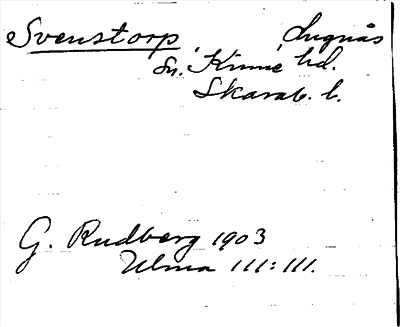 Svenstorp Lugnås
sn. Kinne hd.
Skarab. l.
G. Rudberg 1903
Ulma 111:111.